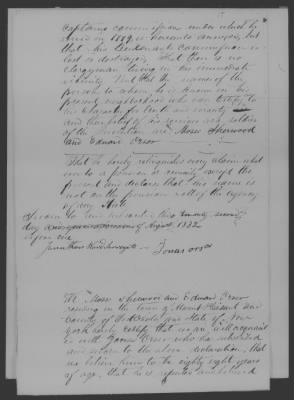 captains commission under which he
served in 1779, is hereunto annexed, but
that his Lieutenants commission is
lost or destroyed, That there is no
clergyman living in his immediate
vicinity. And that the names of the
persons to whom he is known in his
present neighborhood who can testify to
his character for truth and veracity
and their belief of his services as a soldier
of the Revolution are Moses Sherwood
and Edward Orser
That he hereby relinquishes every claim what
ever to a pension or annuity except the
present and declares that his name is
not on the pension roll of the agency
of any State
Sworn to and subscribed this twenty seventh
day of August 1832
before me
Jonas Orser
We Moses Sherwood and Edward Orser
residing in the town of Mount Pleasant and
County of Westchester and State of New
York hereby certify that we are well acquaint
ed with Jonas Orser who has subscribed
and sworn to the above declaration, that
we believe him to be eighty eight years
of age, that he is reputed and believed